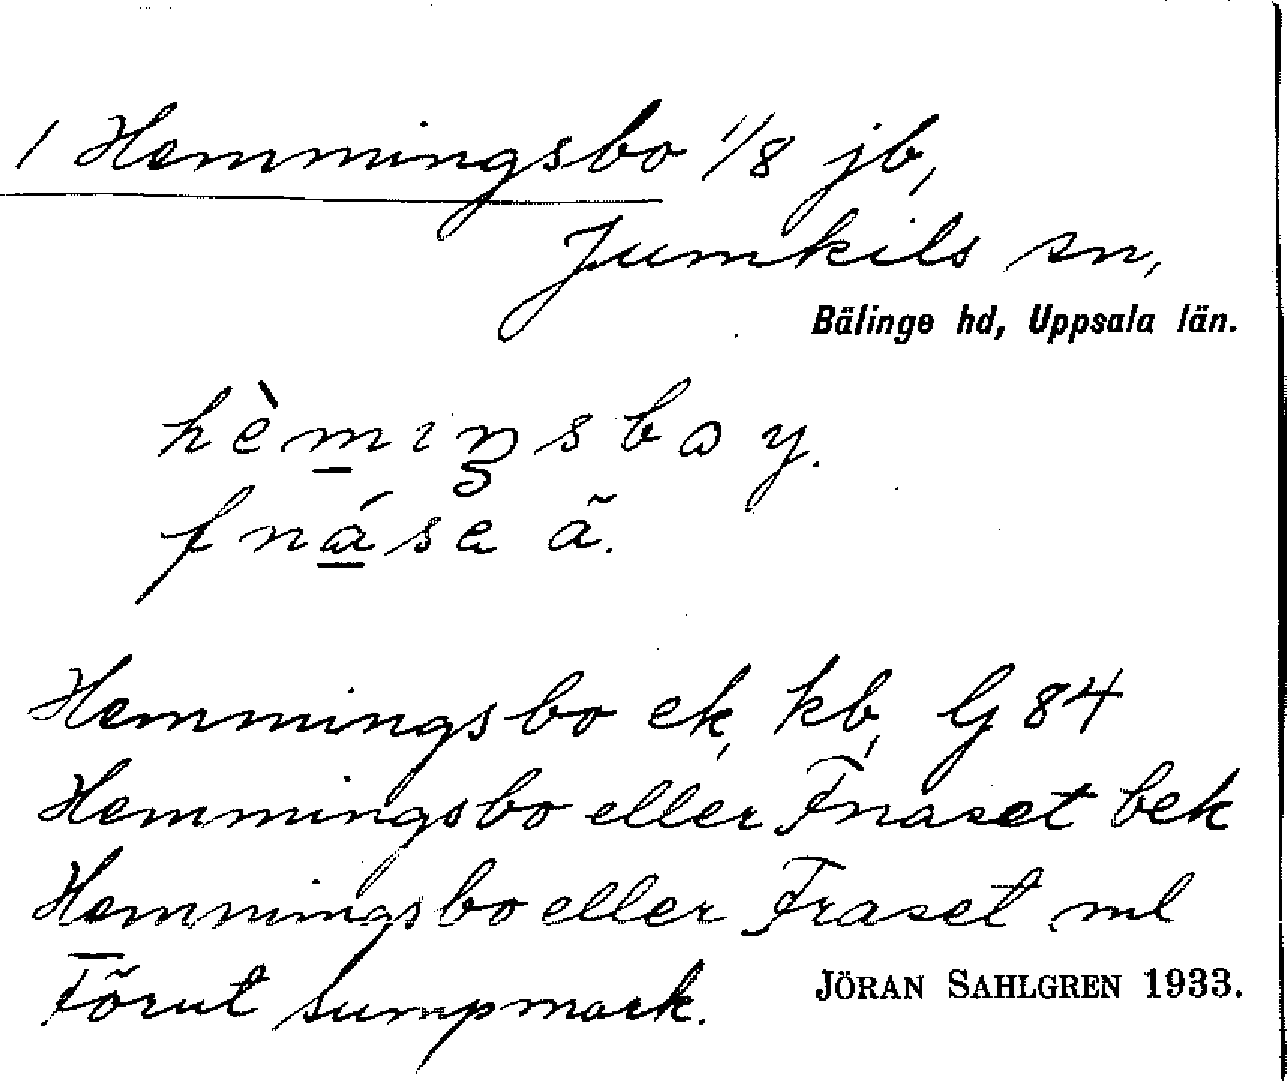 1 Hemmingsbo 1/8 jb,
Jumkils sn,
Bälinge hd, Uppsala län.
hèmıŋsbo y.
fnáse ã.
Hemmingsbo ek, kb, G 84
Hemmingsbo eller Fnaset bek
Hemmingsbo eller Fraset ml
Förut sumpmark.
JÖRAN SAHLGREN 1933.